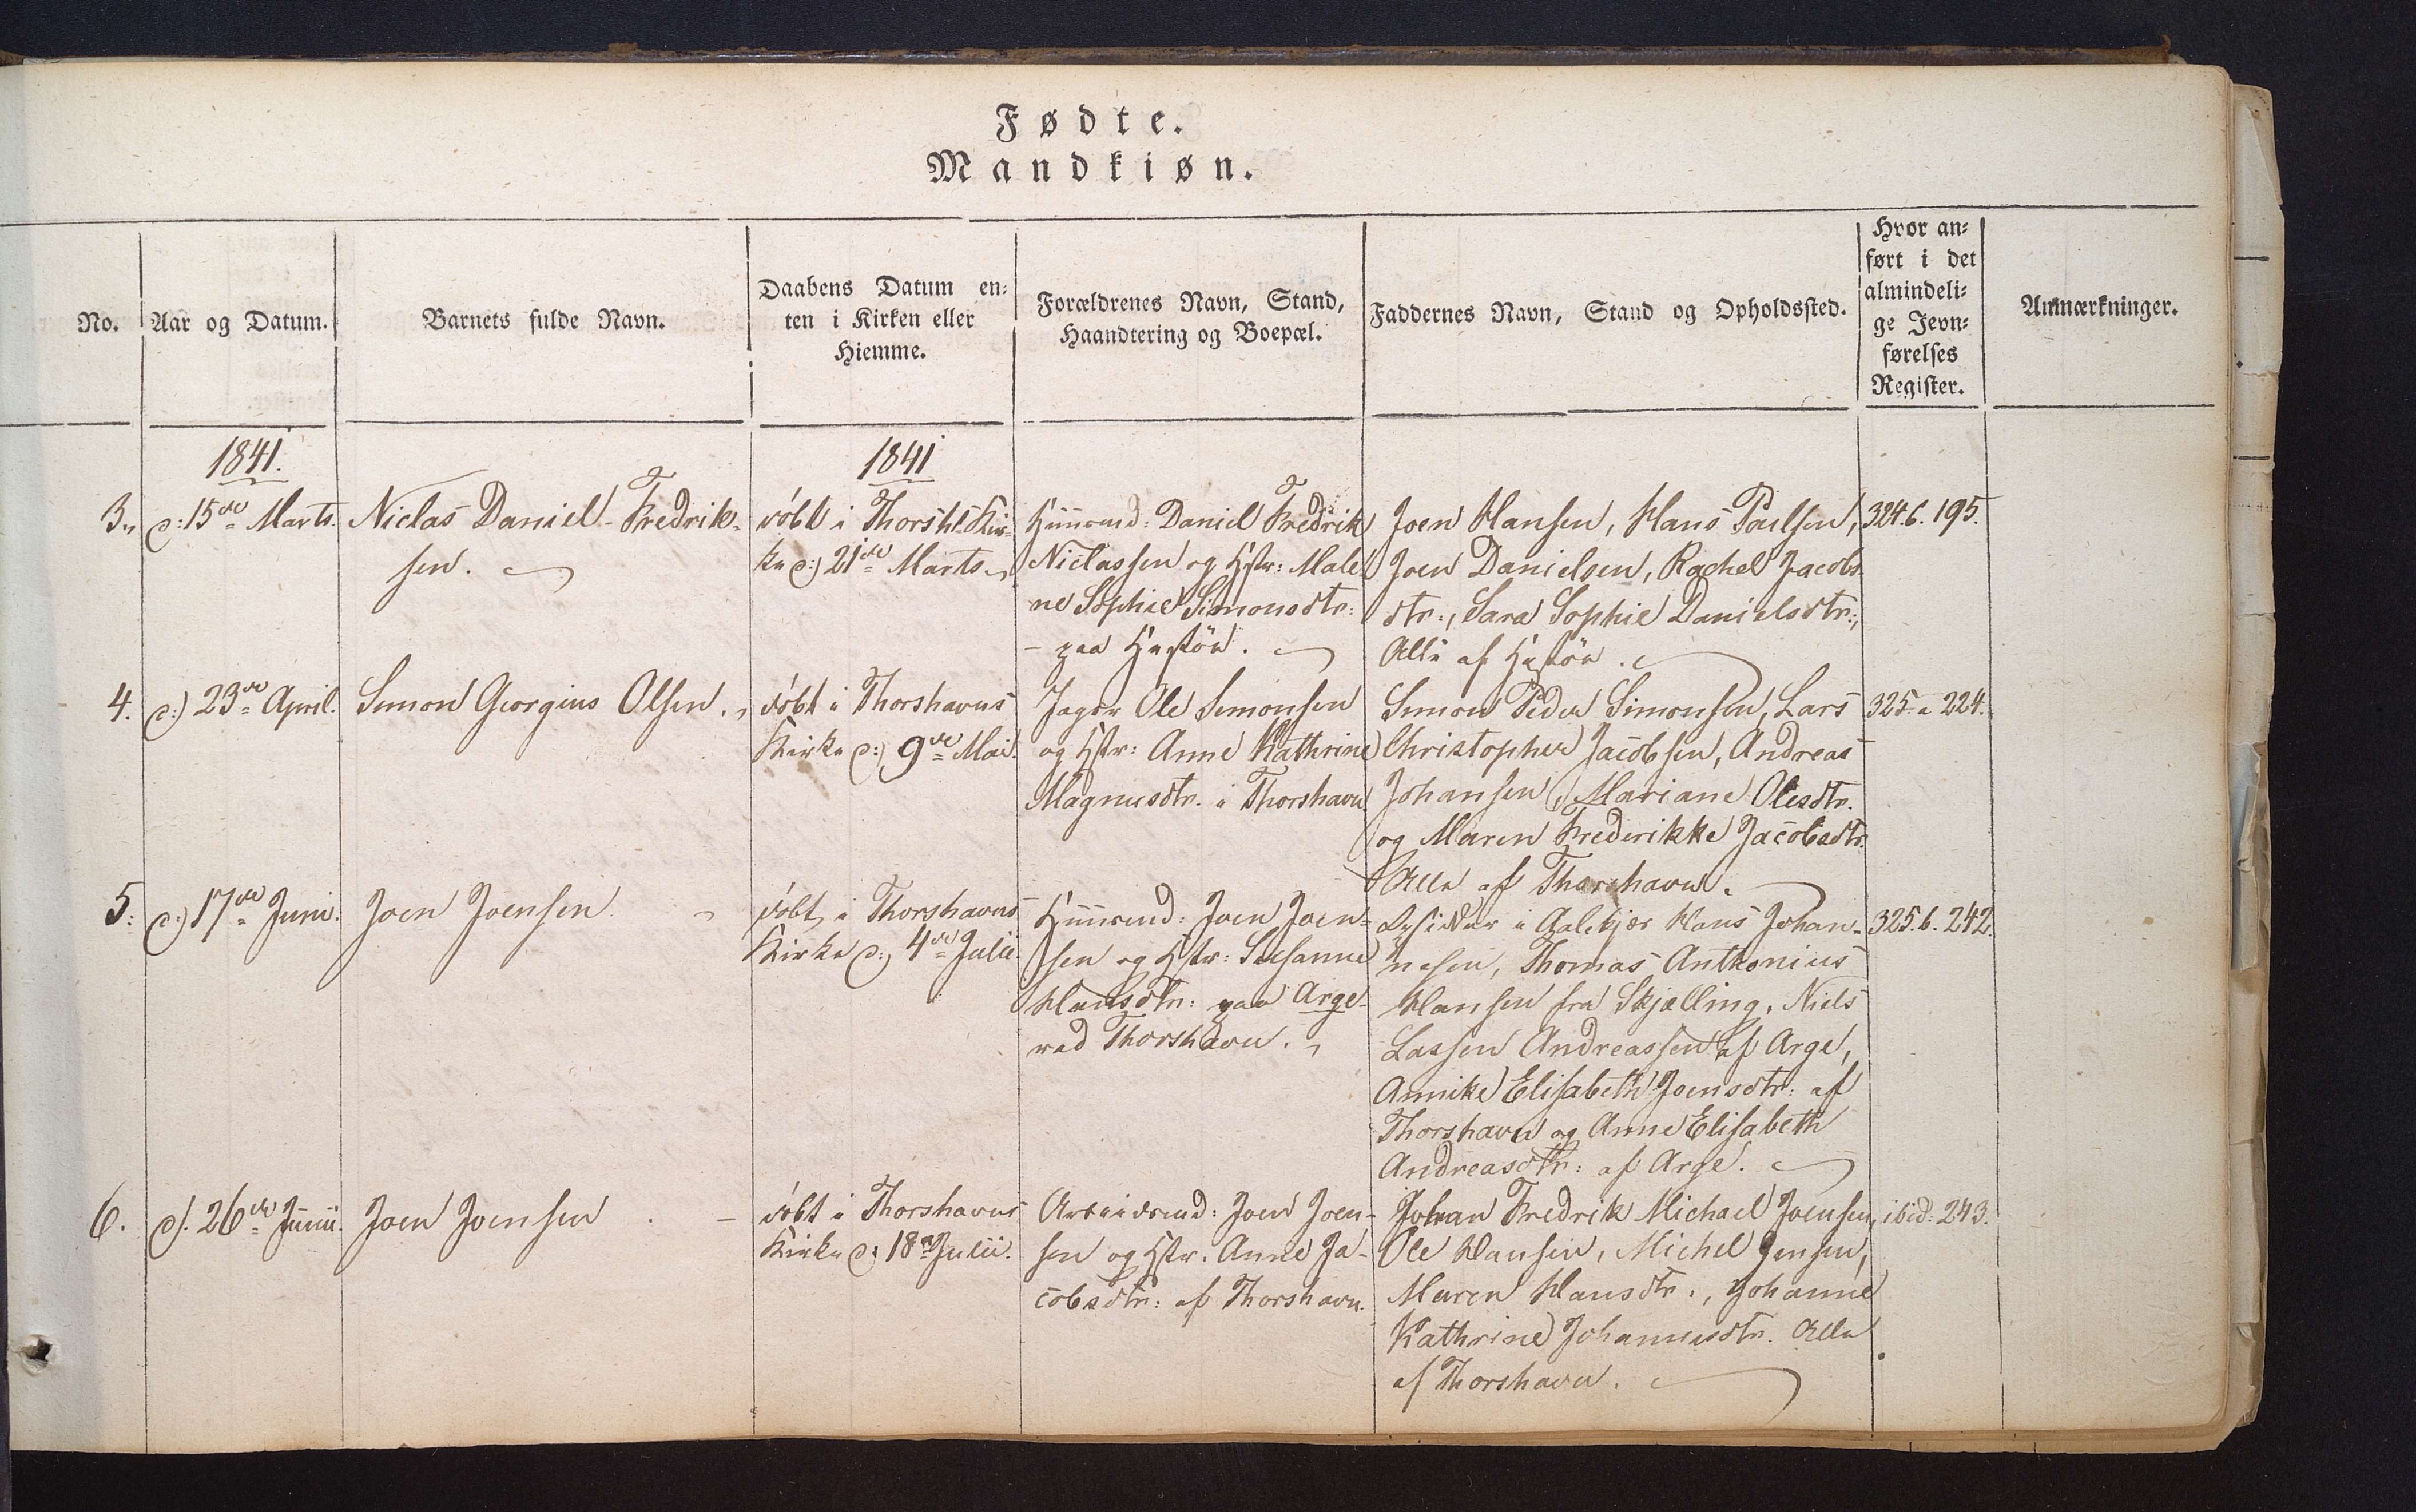 Fødte.
Mandkiøn.
No.
Aar og Datum.
Barnets fulde Navn.
Daabens Datum en⸗
ten i Kirken eller
Hiemme.
Forældrenes Navn, Stand,
Haandtering og Boepæl.
Faddernes Navn, Stand og Opholdssted.
Hvor an⸗
ført i det
almindeli⸗
ge Jevn⸗
førelses
Register.
Anmærkninger.
1841.
1841
3.
d: 15de Marts.
Niclas Daniel Fredrik-
sen.
döbt i Thorsh: Kir-
ke d:) 21de Marts
Huusmd: Daniel Fredrik
Niclassen og Hstr: Male-
ne Sophie Simonsdtr:
- paa Hestöe.
Joen Hansen, Hans Poulsen,
Joen Danielsen, Rachel Jacobs-
dtr:, Sara Sophie Danielsdtr:,
Alle af Hestöe.
324.b. 195.
4.
d:) 23de April.
Simon Georgius Olsen.
döbt i Thorshavns
Kirke d:) 9de Mai.
Jager Ole Simonsen
og Hstr: Anne Kathrine
Magnusdtr. i Thorshavn
Simon Peder Simonsen, Lars
Christopher Jacobsen, Andreas
Johansen, Mariane Olesdtr.
og Maren Frederikke Jacobsdtr.
Alle af Thorshavn.
325. a 224.
5.
d:) 17de Juni.
Joen Joensen.
döbt i Thorshavns
Kirke d:) 4de Julii.
Huusmd: Joen Joen-
sen og Hstr: Susanne
Hansdtr: paa Arge
ved Thorshavn.
i Aalekjer Hans Johan-
nesen, Thomas Anthonius
Hansen fra Skjælling, Niels
Lassen Andreassen af Arge,
Annike Elisabeth Joensdtr: af
Thorshavn og Anne Elisabeth
Andreasdtr: af Arge.
325.b. 242.
6.
d. 26de Junii.
Joen Joensen.
döbt i Thorshavns
Kirke d: 18de Julii.
Arbeidsmd: Joen Joen-
sen og Hstr. Anne Ja-
cobsdtr: af Thorshavn.
Johan Fredrik Michael Joensen,
Ole Hansen, Michel Jensen,
Maren Hansdtr., Johanne
Kathrine Johannesdtr. Alle
af Thorshavn.
ibid: 243.